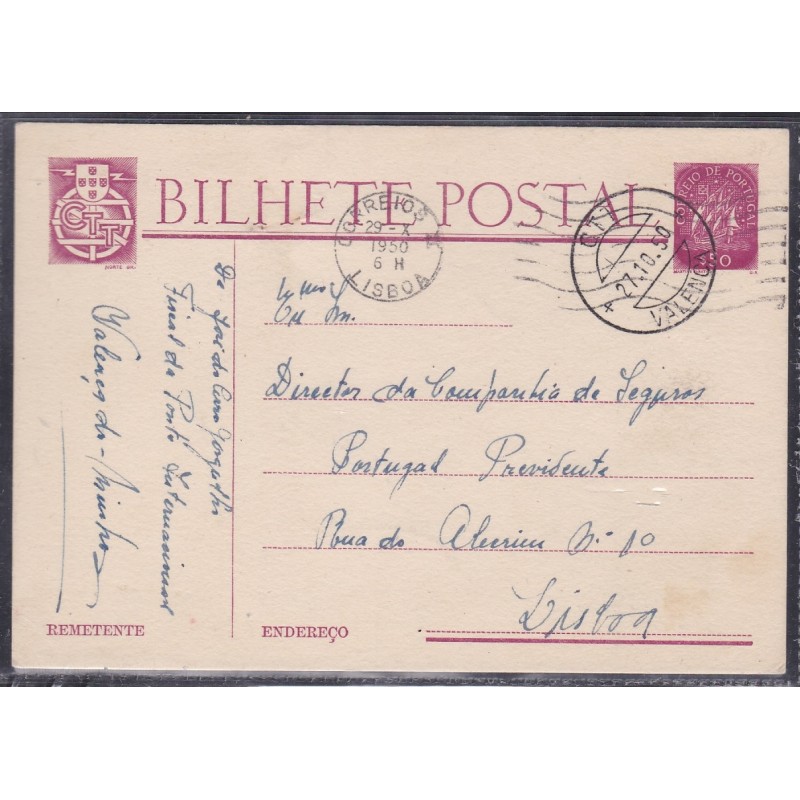 BILHETE POSTAL
CTT
CORREIOS
29-X
1950
6 H
LISBOA
CTT
27.10.50
VALENÇA
CORREIO DE PORTUGAL
Ex.mo Sr.
Director da Companhia de Seguros
Portugal Previdente
Rua do Alecrim N.º 10
Lisboa
ENDEREÇO
De José do
Fiscal da Ponte Internacional
Valença do-Minho
REMETENTE